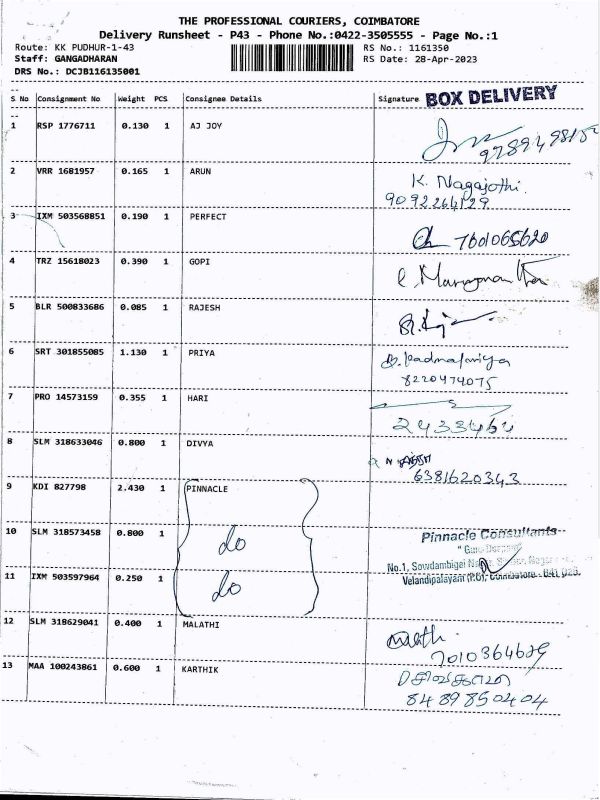 THE PROFESSIONAL COURIERS, COIMBATORE
Delivery Runsheet - P43 - Phone No.:0422-3505555 - Page No.:1
Route: KK PUDHUR-1-43 RS No.: 1161350
Staff: GANGADHARAN RS Date: 28-Apr-2023
DRS No.: DCJB116135001
S No Consignment No Weight PCS Consignee Details Signature BOX DELIVERY
1 RSP 1776711 0.130 1 AJ JOY
2 VRR 1681957 0.165 1 ARUN K. Nagajothi
9092264129
3 IXM 503568851 0.190 1 PERFECT 7601065620
4 TRZ 15618023 0.390 1 GOPI
5 BLR 500833686 0.085 1 RAJESH
6 SRT 301855085 1.130 1 PRIYA
8220474075
7 PRO 14573159 0.355 1 HARI
8 SLM 318633046 0.800 1 DIVYA
6381620343
9 KDI 827798 2.430 1 PINNACLE
10 SLM 318573458 0.800 1 do Pinnacle Consultants
No.1, Sowdambigai
11 IXM 503597964 0.250 1 do Velandipalayam (P.O), Coimbatore - 641 025.
12 SLM 318629041 0.400 1 MALATHI
7010364629
13 MAA 100243861 0.600 1 KARTHIK
8489850404